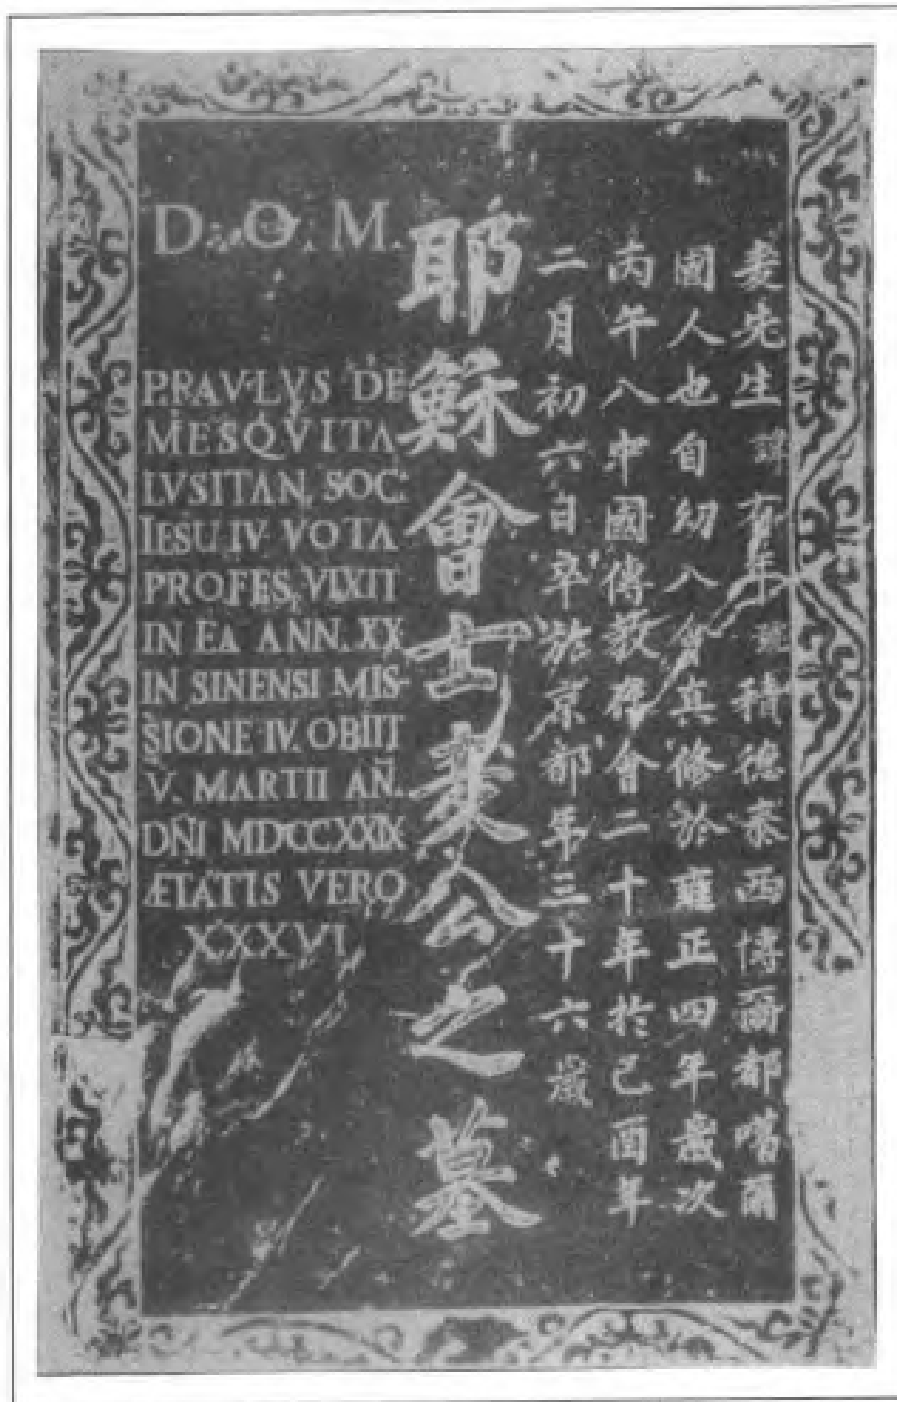 D. O. M.
P. PAVLVS DE
MESQVITA
LVSITAN. SOC.
IESU IV VOTA
PROFES. VIXIT
IN EA ANN. XX
IN SINENSI MIS-
SIONE IV. OBIIT
V. MARTII AÑ.
DÑI MDCCXXIX
ÆTATIS VERO
XXXVI
耶穌會士麥公之墓
麥先生諱有年號積德泰西博爾都噶爾
國人也自幼入會真修於雍正四年歲次
丙午入中國傳教在會二十年於己酉年
二月初六日卒於京都年三十六歲